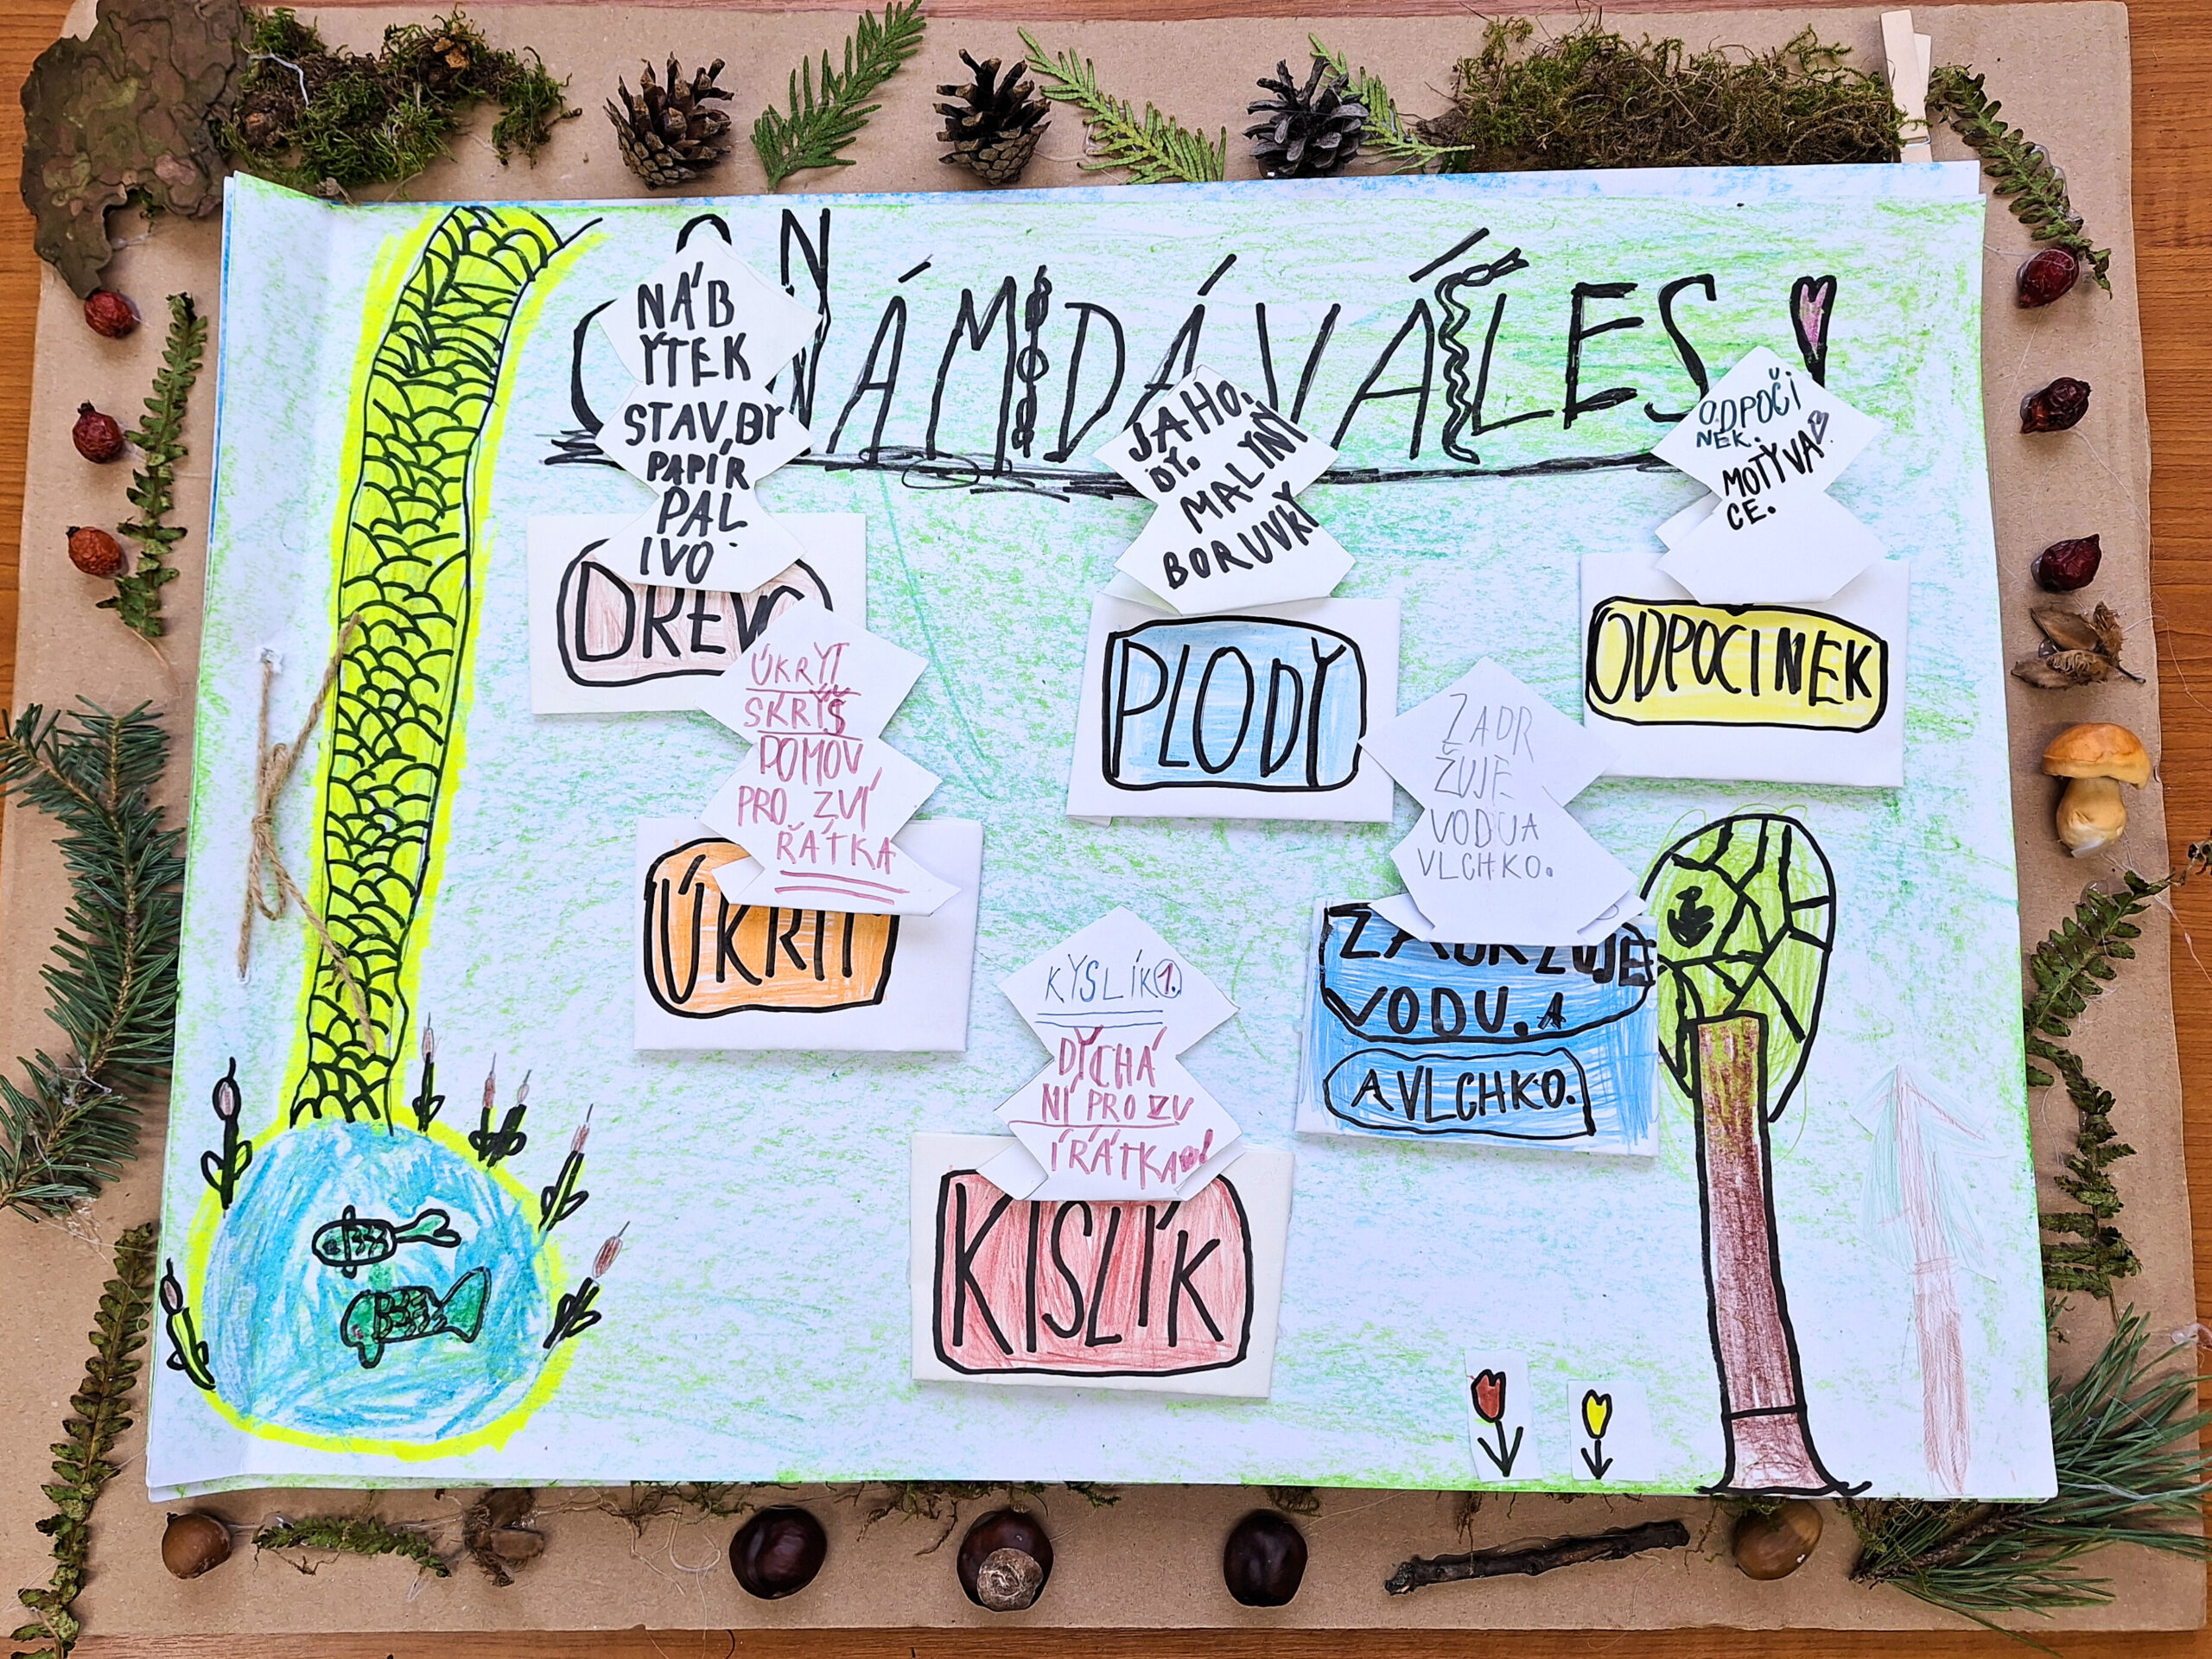 NÁM DÁVÁ LES!
NÁB
YTEK
STAVBY
PAPÍR
PAL
IVO
DŘEVO
JAHO.
DY.
MALYNY
BORUVKY
PLODY
ODPOČI
NEK.
MOTYVA
CE.
ODPOCINEK
ÚKRYT
SKRÝŠ
DOMOV
PRO ZVÍ
ŘÁTKA
ÚKRIT
ZADR
ŽUJE
VODU A
VLCHKO.
ZADRZUJE
VODU. A
A VLCHKO.
KYSLÍK 1.
DÝCHÁ
NÍ PRO ZV
ÍŘÁTKA!
KISLÍK